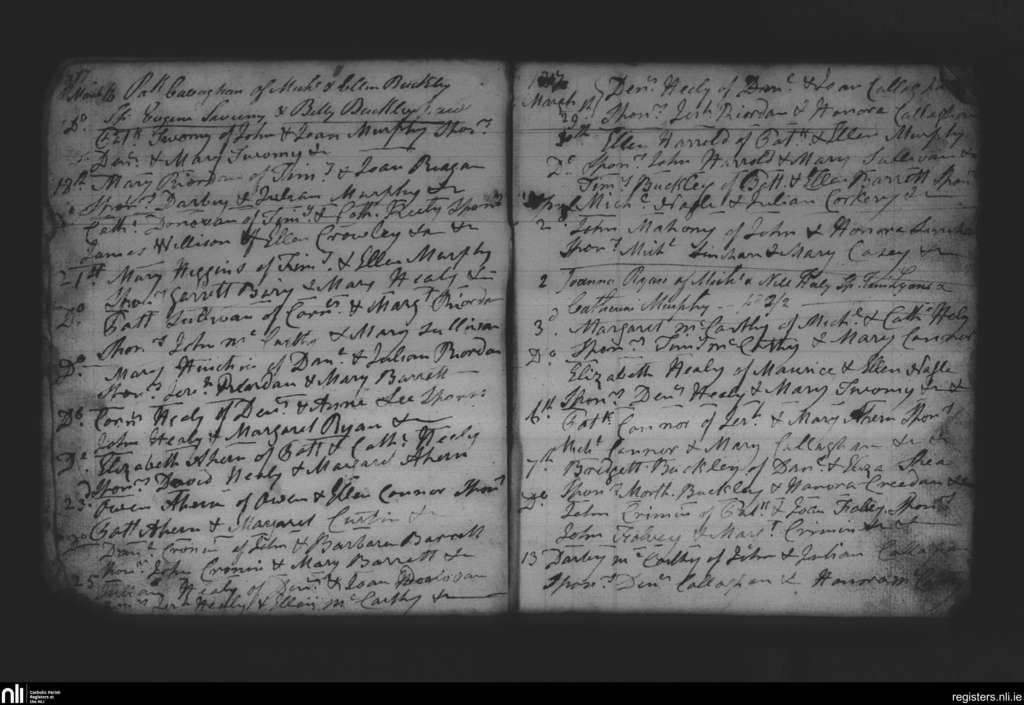 March 16 Patt Callaghan of Mich.l & Ellen Buckley
Sp. Eugene Sweeny & Betty Buckley
D.o Catth Twomy of John & Joan Murphy Spon.rs
Dan.l & Mary Twomy &c
18th Mary Riordan of Tim.y & Joan Reagan
Spon.rs Darby & Julian Murphy &c
D.o Cath.e Donovan of Tim.y & Cath. Spon.rs
James Willison & Ellen Crowley &c &c
21st Mary Higgins of Tim.y & Ellen Murphy
Spon.rs Garrett Bary & Mary Healy &c
D.o Patt Sullivan of Corn.s & Marg.t Riordan
Spon.rs John Mc Carthy & Mary Sullivan
D.o Mary of Dan.l & Julian Riordan
Spon.rs Jere.h Riordan & Mary Barrett
D.o Corn.s Healy of Den.s & Anne Lee Spons
John Healy & Margaret Ryan &c
D.o Elizabeth Ahern of Patt & Cath.e Healy
Spon.rs David Healy & Margaret Ahern
23. Owen Ahern of Owen & Ellen Connor Spon.rs
Patt Ahern & Margaret Curtin &c
Dan.l Cronin of John & Barbara Barrett
Spon.rs John Cronin & Mary Barrett &c
25 Julian Healy of Den.s & Joan Donovan
Jer.h Healy & Ellen Mc Carthy &c
1817
March 29. Den.s Healy of Dan.l & Joan Callaghan
Spon.rs Jerh. Riordan & Honora Callaghan
30th Ellen Harrold of Patk & Ellen Murphy
D.o Spon.rs John Harrold & Mary Sullivan &c
Tim.y Buckley of Patt. & Ellen Barrett Spon.rs
April Mich.l Nagle & Julian Corkery &c
2 John Mahony of John & Honora
Spon.rs Mich.l & Mary Casey &c
2 Joanna Ryan of Mich.l & Nell Haly Sp. Tim Lyons &
Catherine Murphy 2/2
3 Margaret Mc Carthy of Mich.l & Cath.e Healy
D.o Spon.rs Tim Mc Carthy & Mary Connor
Elizabeth Healy of Maurice & Ellen Nagle
Spon.rs Den.s Healy & Mary Twomy &c &c
6th Patk Connor of Jer.h & Mary Ahern Spon.rs
Mich.l Connor & Mary Callaghan &c &c
7th Bridgett Buckley of Dan.l & Eliza Shea
D.o Spon.rs Morth. Buckley & Honora Creedan &c
John Crimin of Patk & Joan Spon.rs
John & Marg.t Crimin &c &c
13 Darby Mc Carthy of John & Julian Callaghan
Spon.rs Den.s Callaghan & Honora
nli
Catholic Parish
Registers at
the NLI
registers.nli.ie